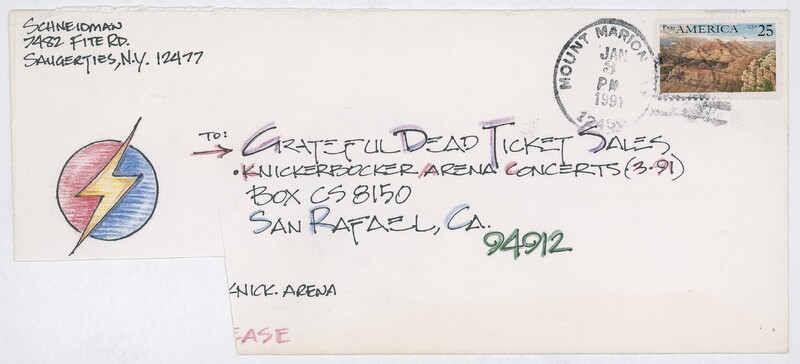 SCHNEIDMAN
7482 FITE RD.
SAUGERTIES, N.Y. 12477
MOUNT MARION
JAN
3
PM
1991
PUAS AMERICA USA 25
TO:
GRATEFUL DEAD TICKET SALES
• KNICKERBOCKER ARENA CONCERTS (3·91)
BOX CS 8150
SAN RAFAEL, CA.
94912
KNICK. ARENA
EASE